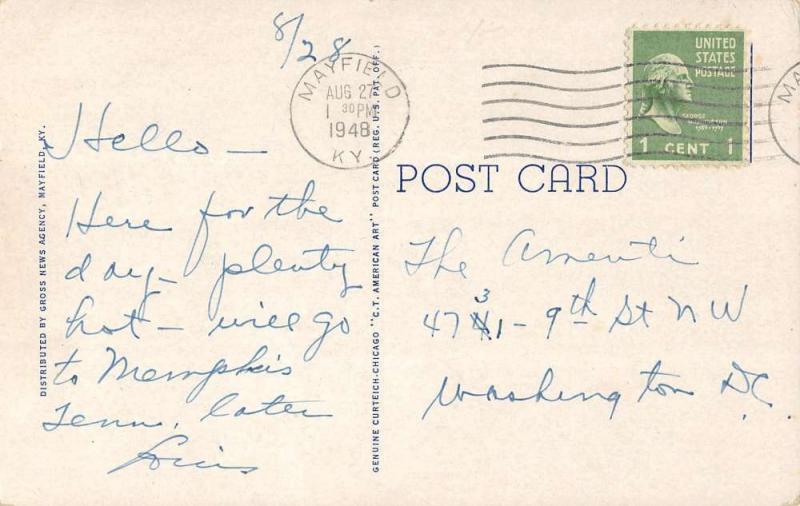 8/28
Hello —
Here for the
day — plenty
hot — will go
to Memphis
Tenn. later
DISTRIBUTED BY GROSS NEWS AGENCY, MAYFIELD, KY.
GENUINE CURTEICH-CHICAGO "C.T. AMERICAN ART" POST CARD (REG. U.S. PAT. OFF.)
MAYFIELD
AUG 27
1 30 PM
1948
KY.
MA
UNITED
STATES
POSTAGE
GEORGE
WASHINGTON
1789-1797
1 CENT 1
POST CARD
The Amenti
4731 - 9th St N W
Washington D.C.